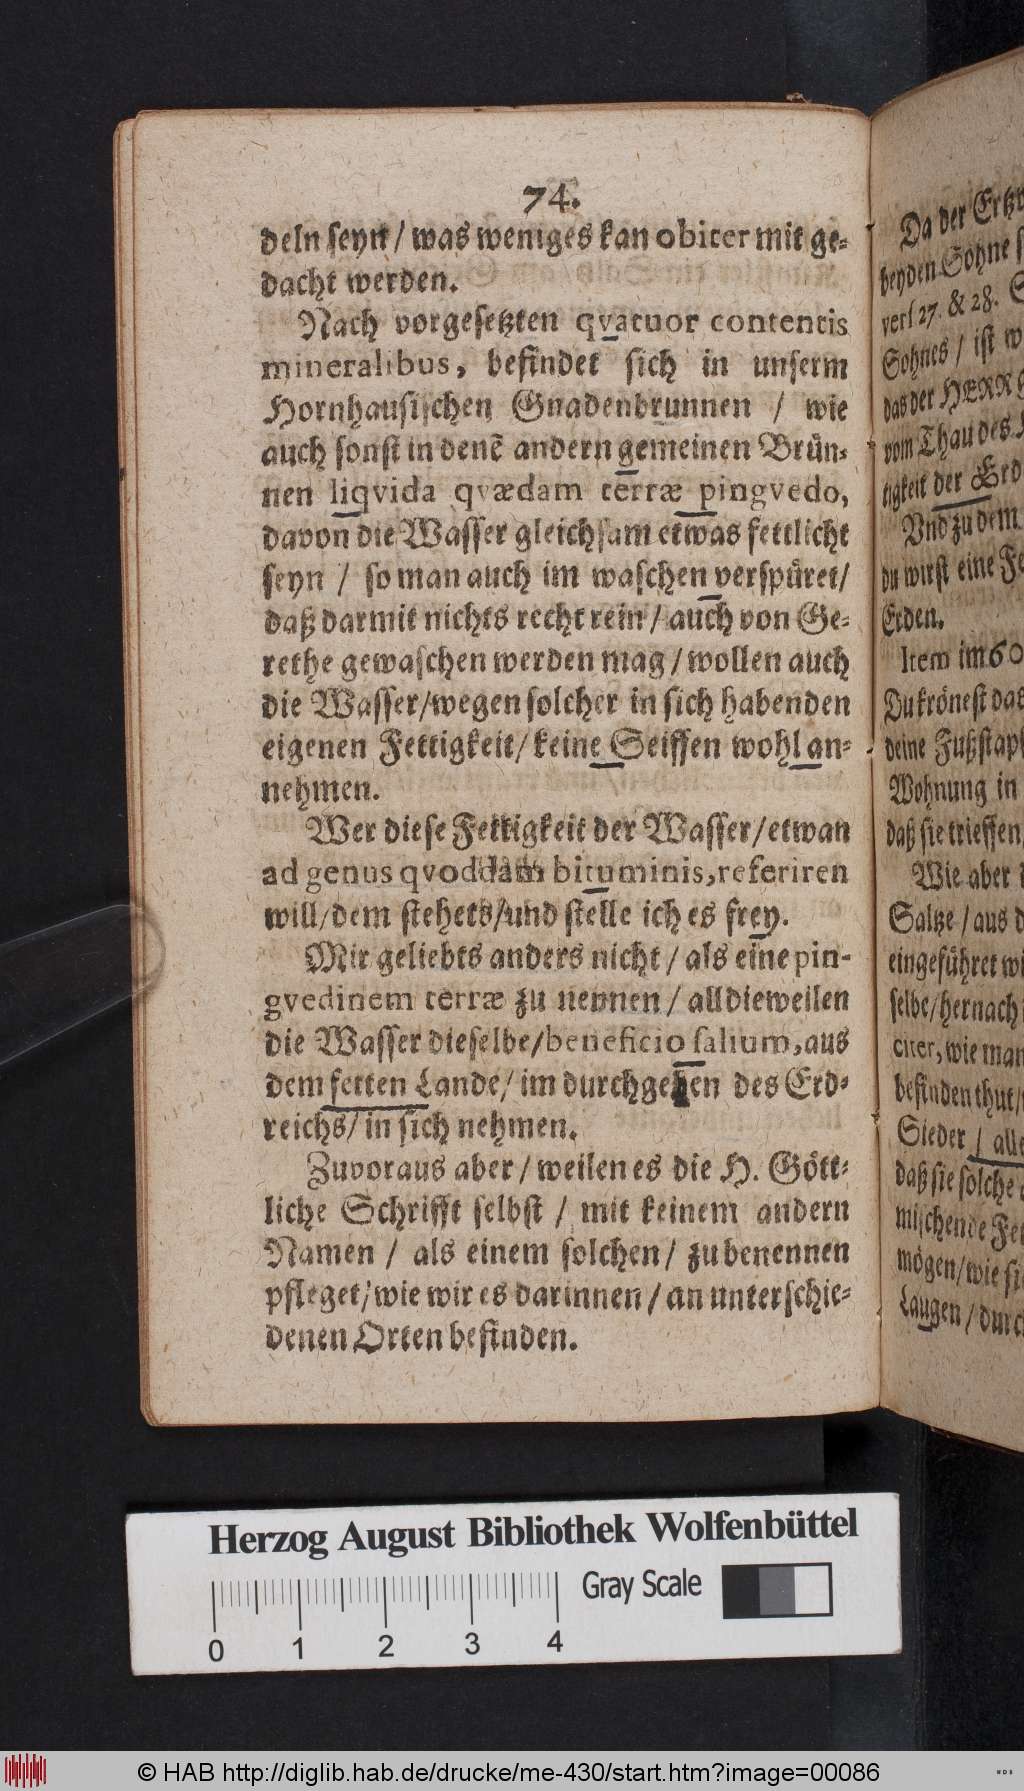 74.
deln seyn / was weniges kan obiter mit ge-
dacht werden.
Nach vorgesetzten qvatuor contentis
mineralibus, befindet sich in unserm
Hornhausischen Gnadenbrunnen / wie
auch sonst in denẽ andern gemeinen Brün-
nen liqvida qvædam terræ pingvedo,
davon die Wasser gleichsam etwas fettlicht
seyn / so man auch im waschen verspüret /
daß darmit nichts recht rein / auch von Ge-
rethe gewaschen werden mag / wollen auch
die Wasser / wegen solcher in sich habenden
eigenen Fettigkeit / keine Seiffen wohl an-
nehmen.
Wer diese Fettigkeit der Wasser / etwan
ad genus qvoddam bituminis, referiren
will / dem stehets / und stelle ich es frey.
Mir geliebts anders nicht / als eine pin-
gvedinem terræ zu nennen / alldieweilen
die Wasser dieselbe / beneficio salium, aus
dem fetten Lande / im durchgehen des Erd-
reichs / in sich nehmen.
Zuvoraus aber / weilen es die H. Gött-
liche Schrifft selbst / mit keinem andern
Namen / als einem solchen / zu benennen
pfleget / wie wir es darinnen / an unterschie-
denen Orten befinden.
Da der Ertz
beyden Sohne
vers 27. & 28.
Sohnes / ist
das der HERR
vom Thau des
tigkeit der Erd
Und zu dem
du wirst eine
Erden.
Item im 60
Du krönest das
deine Fußstap
Wohnung in
daß sie trieffen
Wie aber
Saltze / aus
eingeführet
selbe / hernach
citer, wie man
befinden thut /
Sieder / alle
daß sie solche
mischende
mögen / wie
Laugen / durch
Herzog August Bibliothek Wolfenbüttel
Gray Scale
0 1 2 3 4
© HAB http://diglib.hab.de/drucke/me-430/start.htm?image=00086